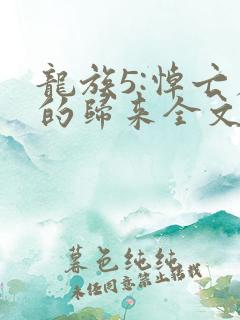 龍族5:悼亡
的歸来全文
暮色纯纯
未经同意禁止转载